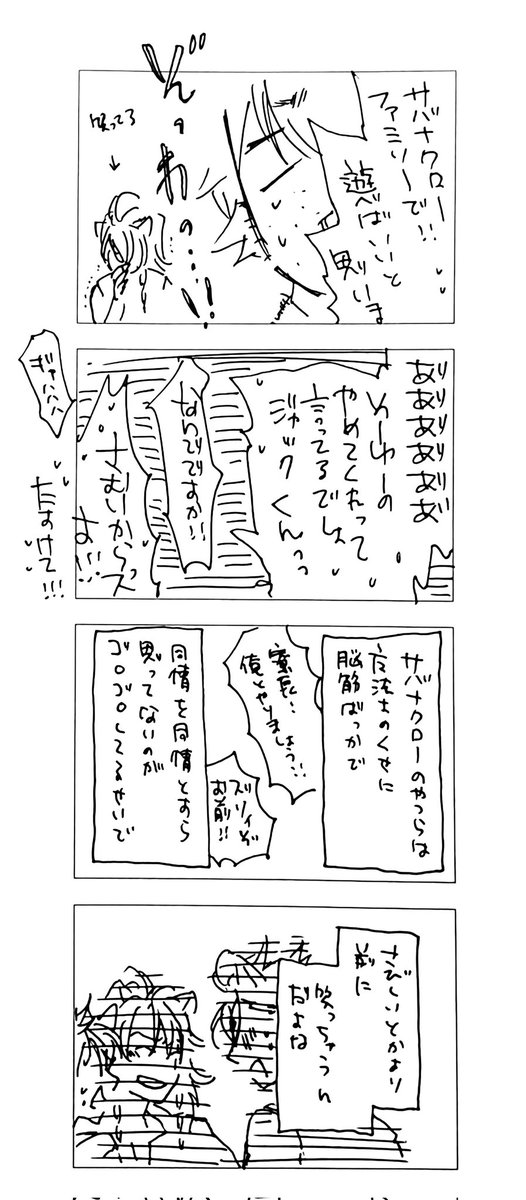 サバナクロー
ファミリーで!!
遊べばいいと
思いま
笑ってる
あ゛あ゛あ゛あ゛あ゛あ゛
やめてくれって
言ってるでしょ
ジャックくんっっ
なんでですか!!
さむいからっス
よ!!!
たすけて!!!
ギャハハハ
サバナクローのやつらは
魔法士のくせに
脳筋ばっかで
寮長!
俺とやりましょう!!
ズリィぞ
お前!!
同情を同情とすら
思ってないのが
ゴロゴロしてるせいで
さびしいとかより
前に
笑っちゃうん
だよね